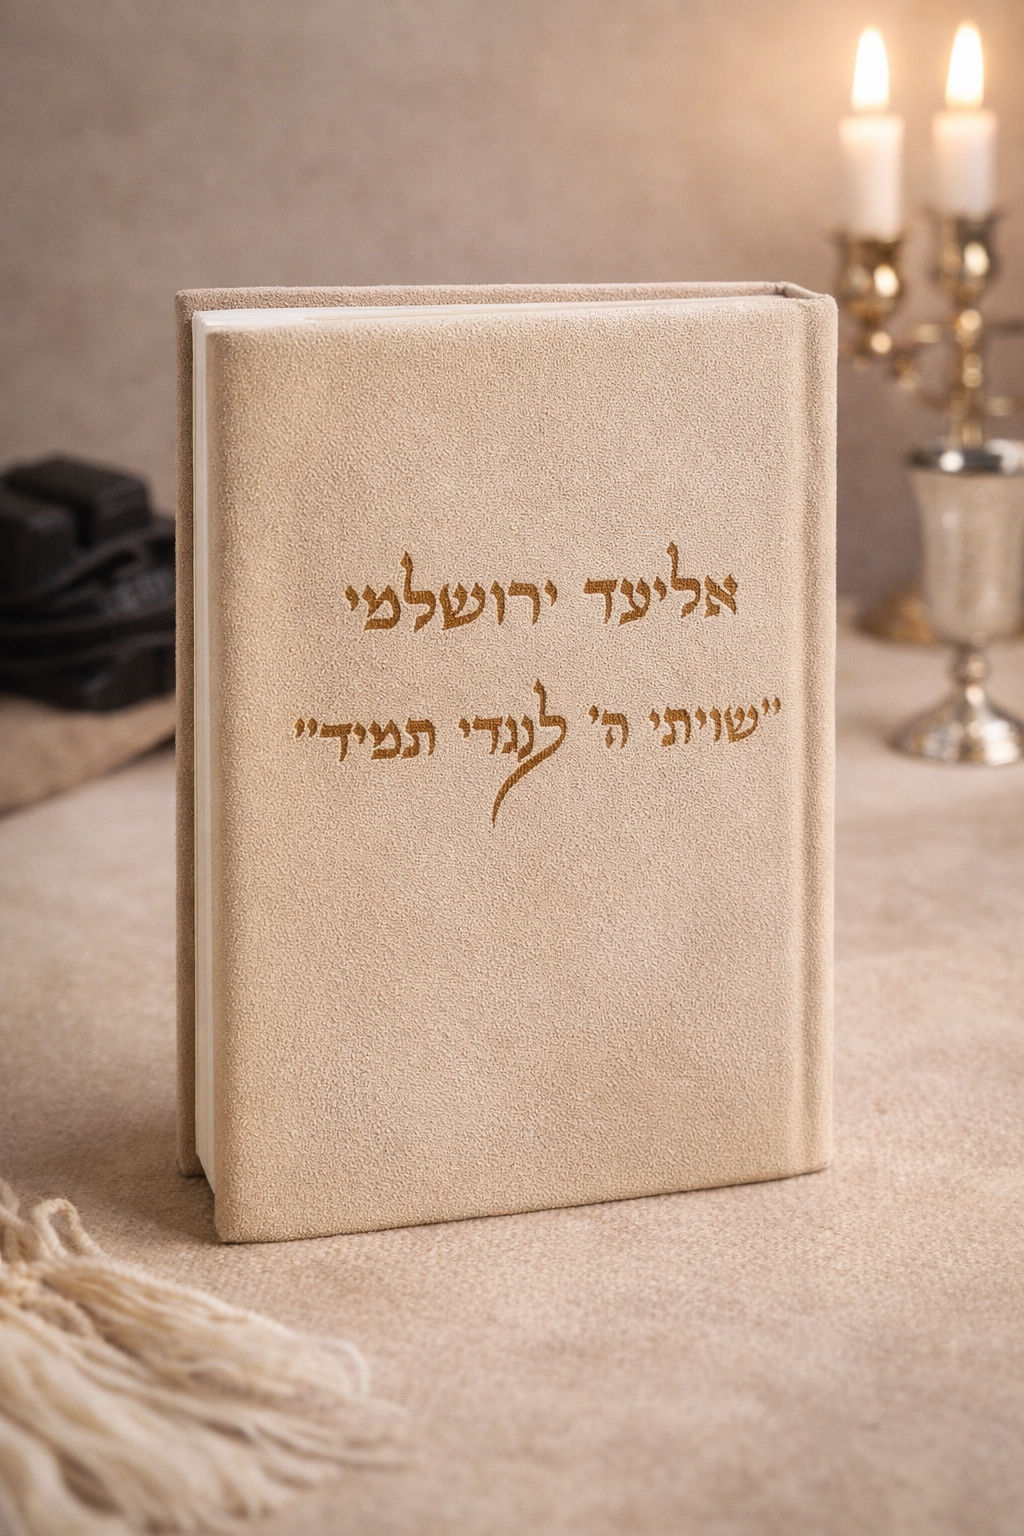 אליעד ירושלמי
"שויתי ה' לנגדי תמיד"